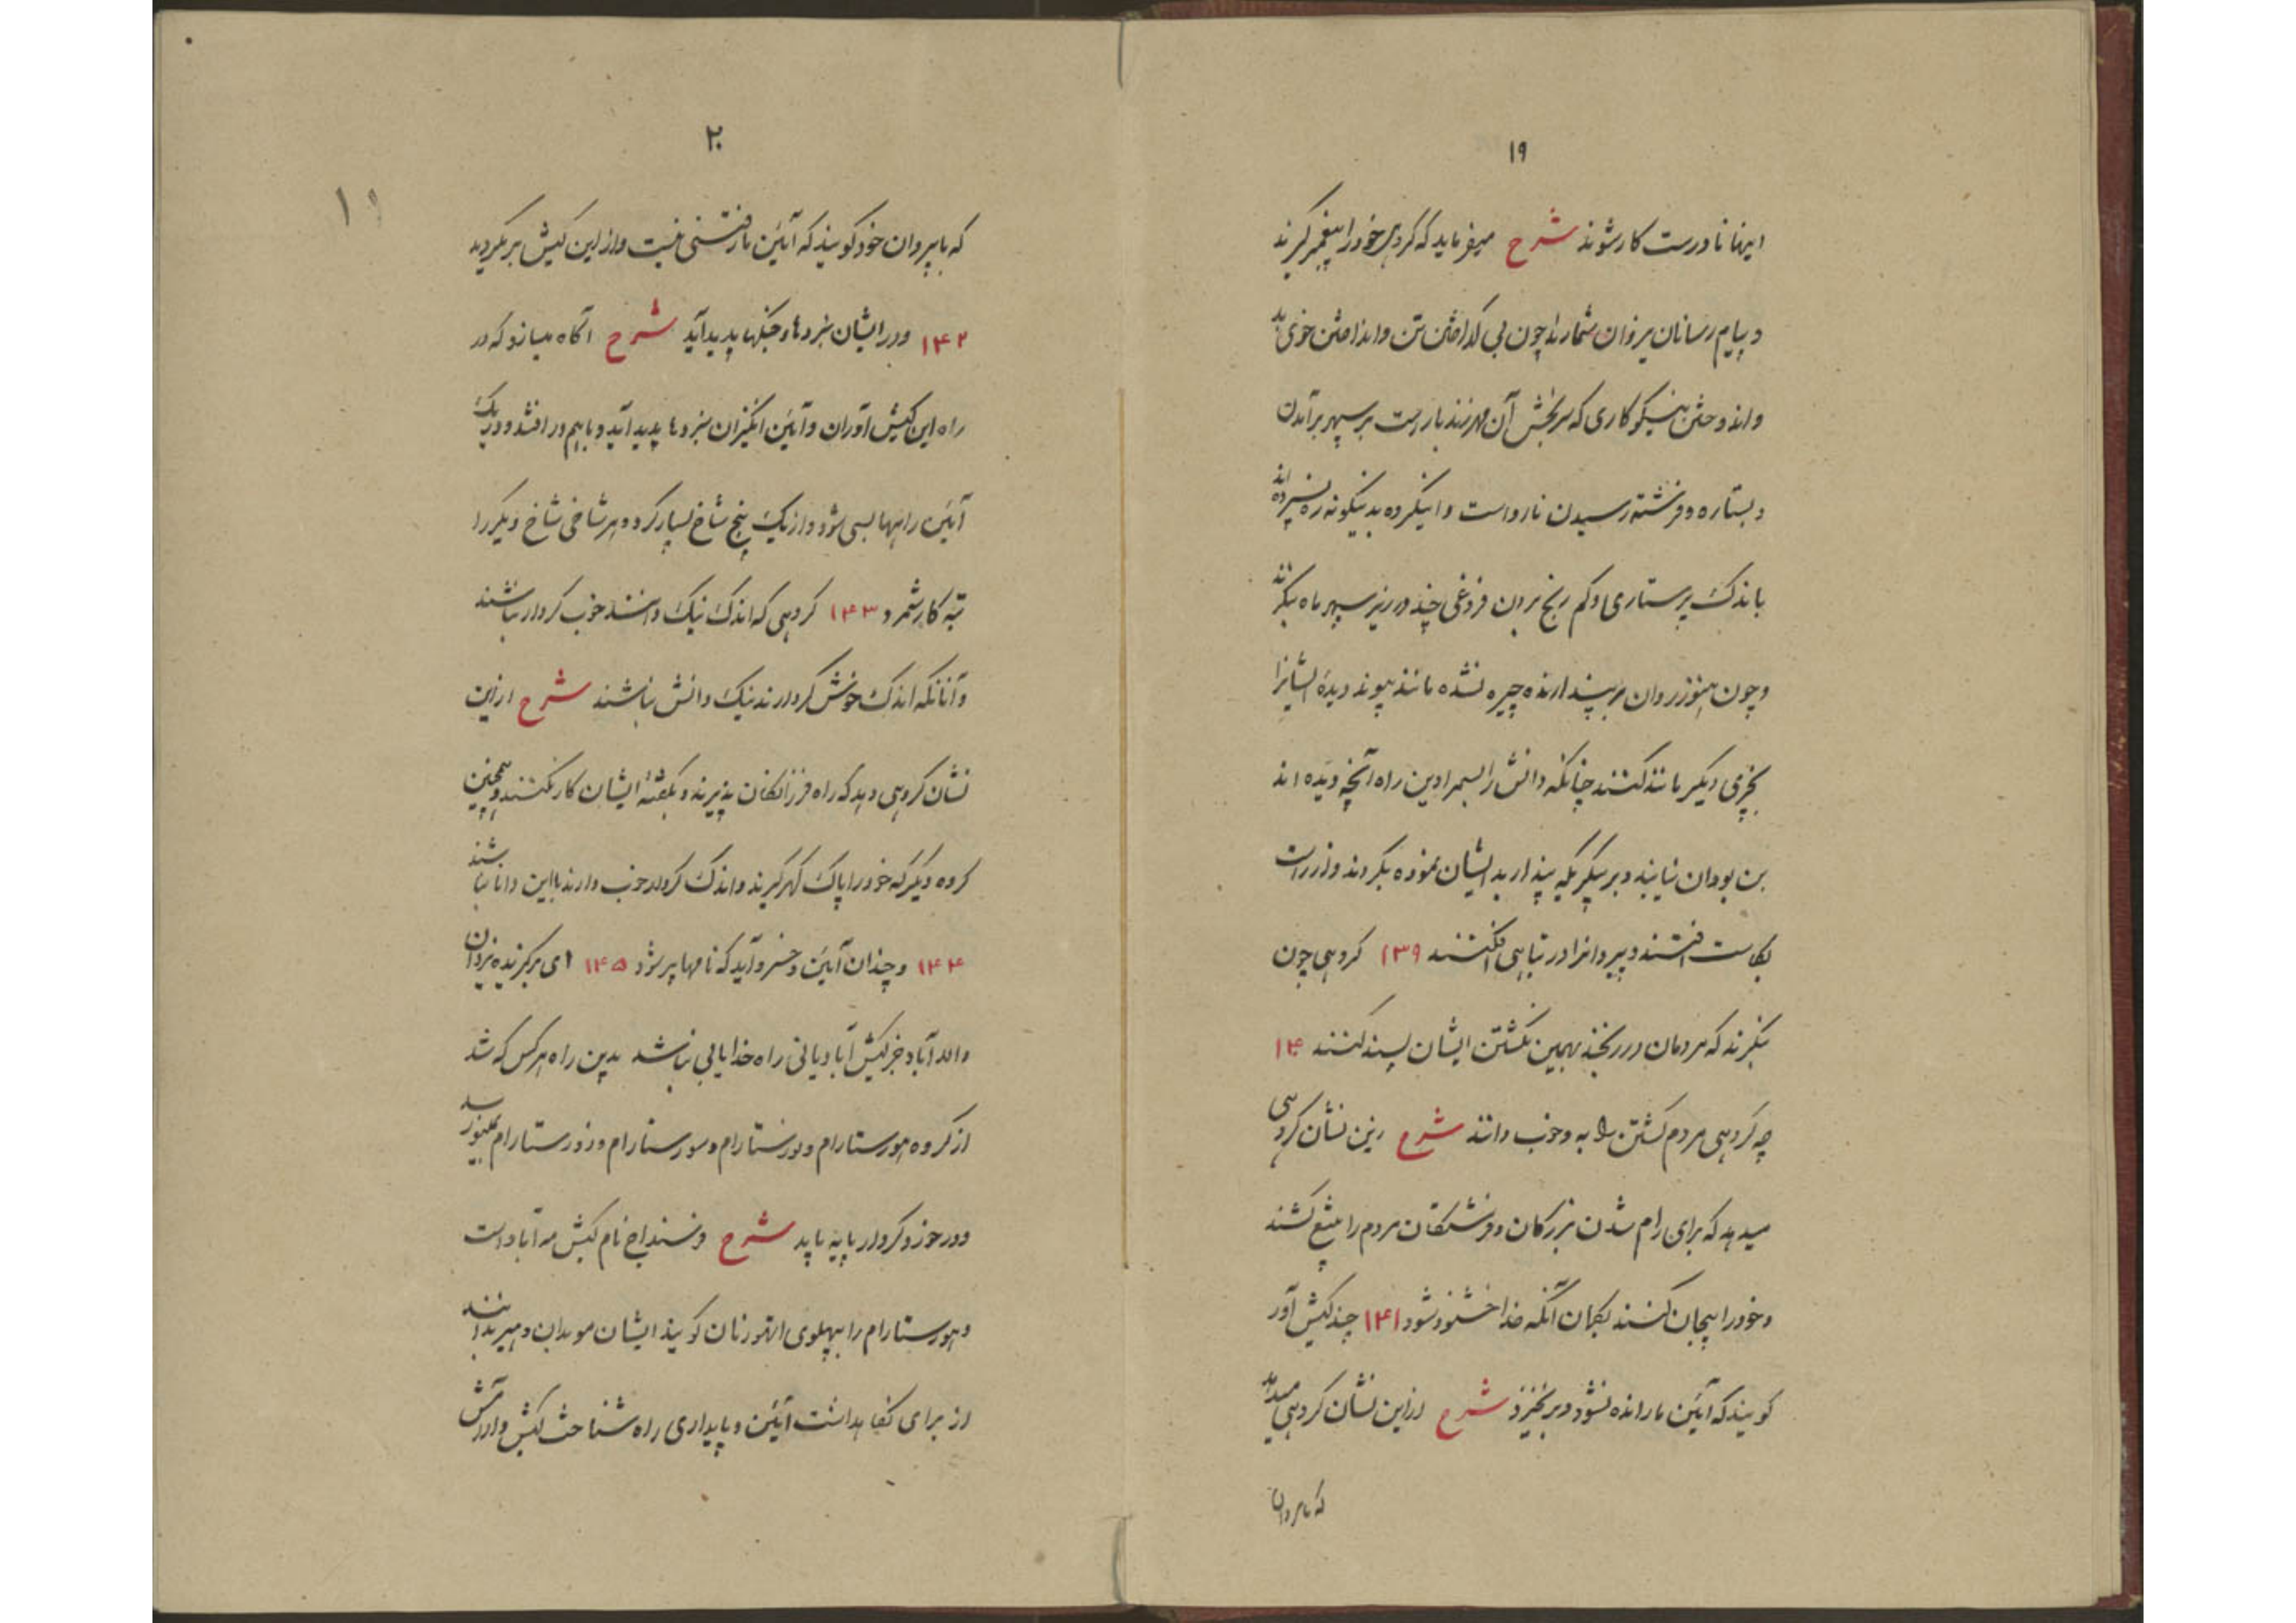 ۱۹
اینها نادرست کار شوند شرح میفرماید که گروهی خود را پیغمبر گیرند
و پیام رسانان یزدان شمارند چون بی گداختن تن و انداختن خوی بد
و اندوختن نیکوکاری که سربخش آن مهرند بارست بر سپهر برآمدن
و بستاره و فرشته رسیدن نارواست و اینگروه بدینگونه ره نسپرده اند
باندک پرستاری و کم رنج بردن فروغی چند در زیر سپهر ماه بنگرند
و چون هنوز روان بر پندارنده چیره نشده مانند پیوند دیده ایشانرا
بچیزی دیگر مانند کنند چنانکه دانش را بسمراد این راه آنچه دیده اند
بن بودان نیابند و بر پیکریکه پندار بدیشان نموده بگروند و از راست
بکاست افتند و پیروانرا در تباهی افکنند ۱۳۹ گروهی چون
بنگرند که مردمان در رنجند بهمین نکشتن ایشان بسند کنند ۱۴۰
چه گروهی مردم کشتن را به و خوب دانند شرح ازین نشان گروهی
میدهد که برای رام شدن بزرگان و فرشتگان مردم را بتیغ کشند
و خود را بیجان کنند بگمان آنکه خدا خشنود شود ۱۴۱ چند کیش آور
گویند که آئین ما رانده نشود و برنخیزد شرح ازاین نشان گروهی میدهد
که باپیروان
۲۰
که باپیروان خود گویند که آئین ما رفتنی نیست و از این کیش برنگردید
۱۴۲ و در ایشان نبردها و جنگها پدید آید شرح آگاه میسازد که در
راه این کیش آوران و آئین انگیزان نبردها پدید آید و باهم در افتند و در یک
آئین راهها بسی شود و از یک پنج شاخ بسیار گردد و هر شاخی شاخ دیگر را
تبه کار شمرد ۱۴۳ گروهی که اندک نیک دانند خوب کردار نباشند
و آنانکه اندک خوش کردارند نیک دانش نباشند شرح ازین
نشان گروهی دهد که راه فرزانگان پذیرند و بگفته ایشان کار نکنند و همچنین
گروه دیگر که خود را پاک گهر گیرند و اندک کردار خوب دارند با این دانا نباشند
۱۴۴ و چندان آئین و خسرو آید که نامها پر شود ۱۴۵ ای برگزیده یزدان
والاد آباد جز کیش آبادیانی راه خدایابی نباشد بدین راه هر کس که شد
از گروه هورستارام و نورستارام و سورستارام و روزستارام بمینو رسد
و در خورد کردار پایه یابد شرح فرسنداج نام کیش مه آباد است
و هورستارام را بپهلوی اتهورنان گویند ایشان موبدان و هیربدانند
از برای نگاهداشت آئین و پایداری راه شناخت کیش و آرامش